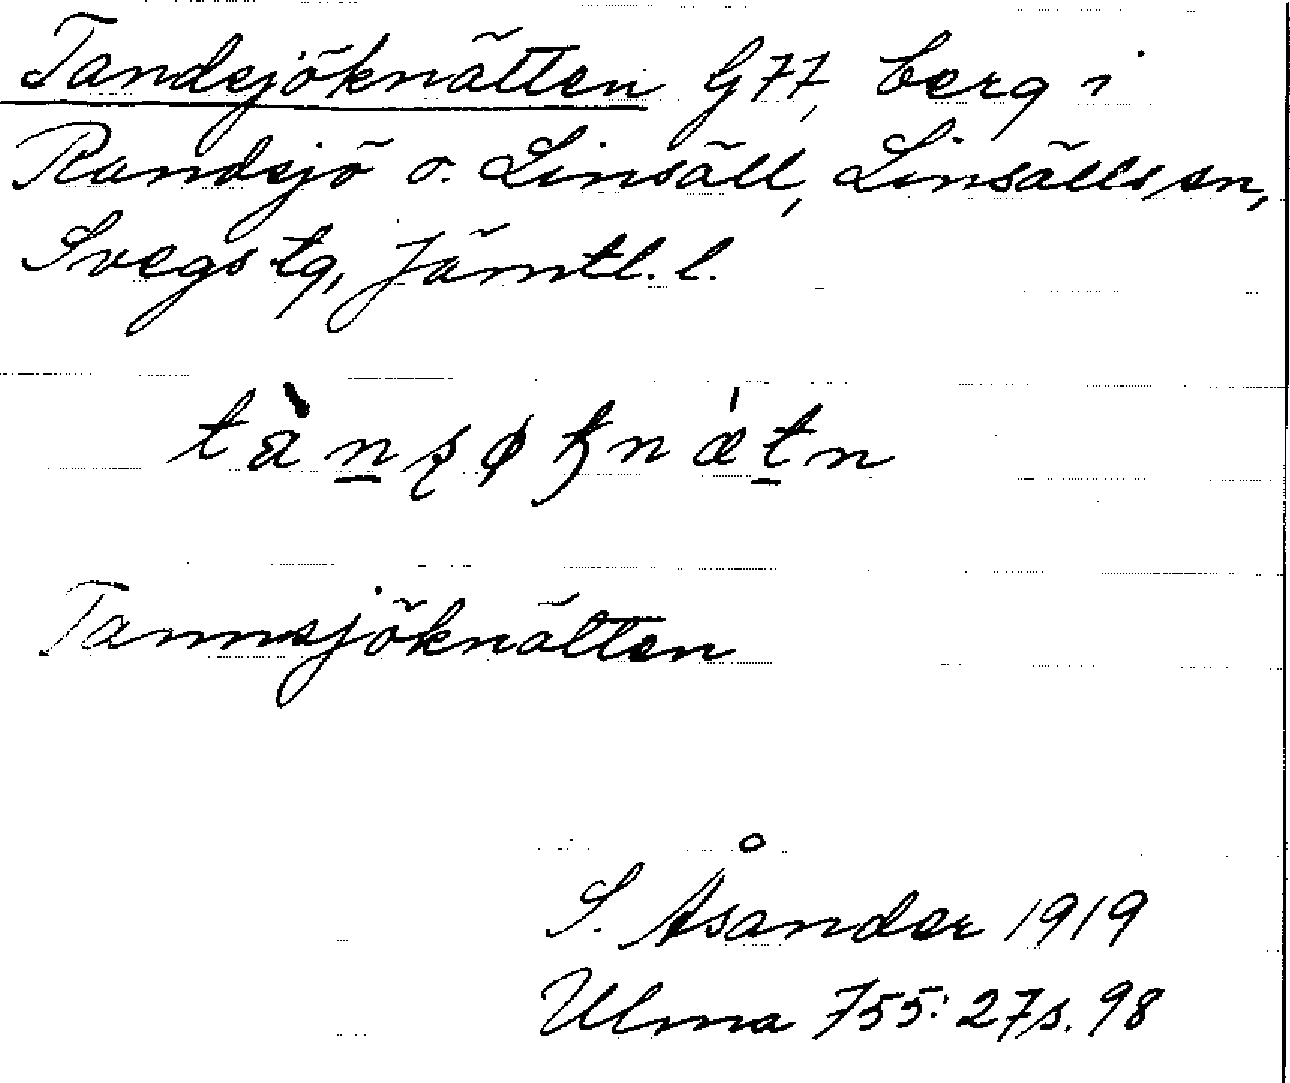 Tandsjöknätten G77, berg i
Randsjö o. Linsäll, Linsälls sn,
Svegs tg, Jämtl. l.
Tannsjöknätten
S. Åsander 1919
Ulma 755:27 s. 98